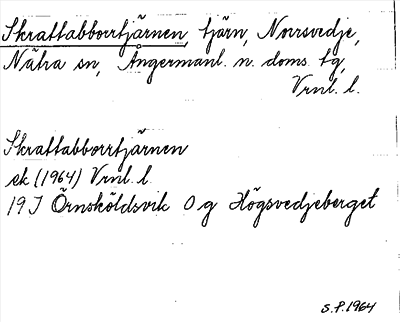 Skrattabborrtjärnen, tjärn, Norrsvedje,
Nätra sn, Ångermanl. n. doms. tg,
Vrnl. l.
Skrattabborrtjärnen
ek (1964) Vrnl. l.
19 J Örnsköldsvik 0 g Högsvedjeberget
S.P. 1964